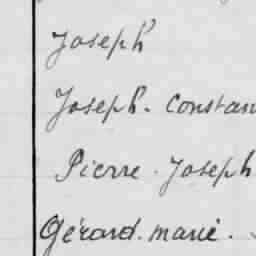 Joseph
Joseph. Constan
Pierre. Joseph
Gérard. marie.